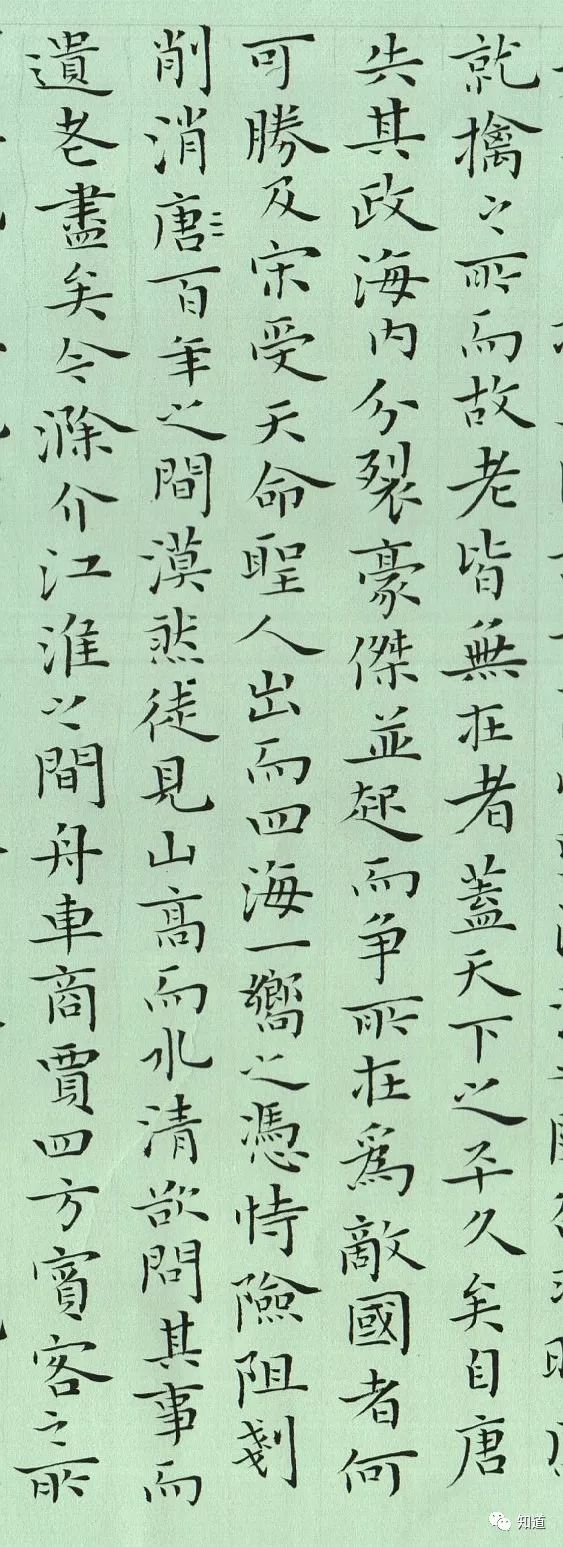 就擒之所而故老皆無在者蓋天下之平久矣自唐
失其政海内分裂豪傑並起而争所在爲敵國者何
可勝及宋受天命聖人出而四海一嚮之憑恃險阻剗
削消唐百年之間漠然徒見山高而水清欲問其事而
遺老盡矣今滁介江淮之間舟車商賈四方賓客之所
知道